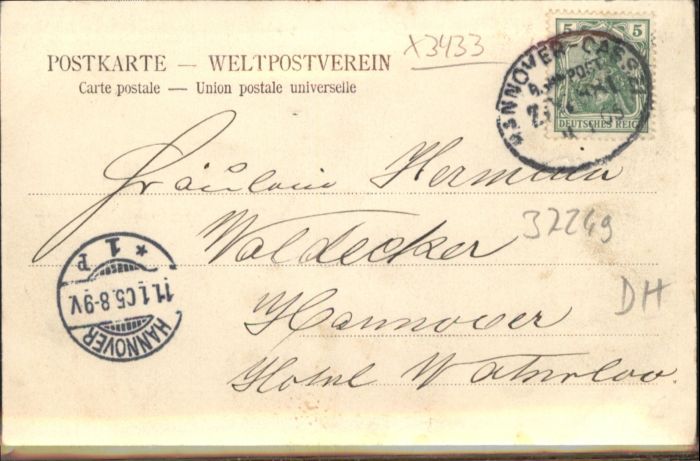 X3433
5 5
POSTKARTE — WELTPOSTVEREIN
Carte postale — Union postale universelle
HANNOVER-CASSEL
BAHNPOST
ZUG
DEUTSCHES REICH
Fräulein Hermann
Waldecker
32249
Hannover
DH
Hotel Waterloo
HANNOVER
11.1.05.8-9V.
* 1 P